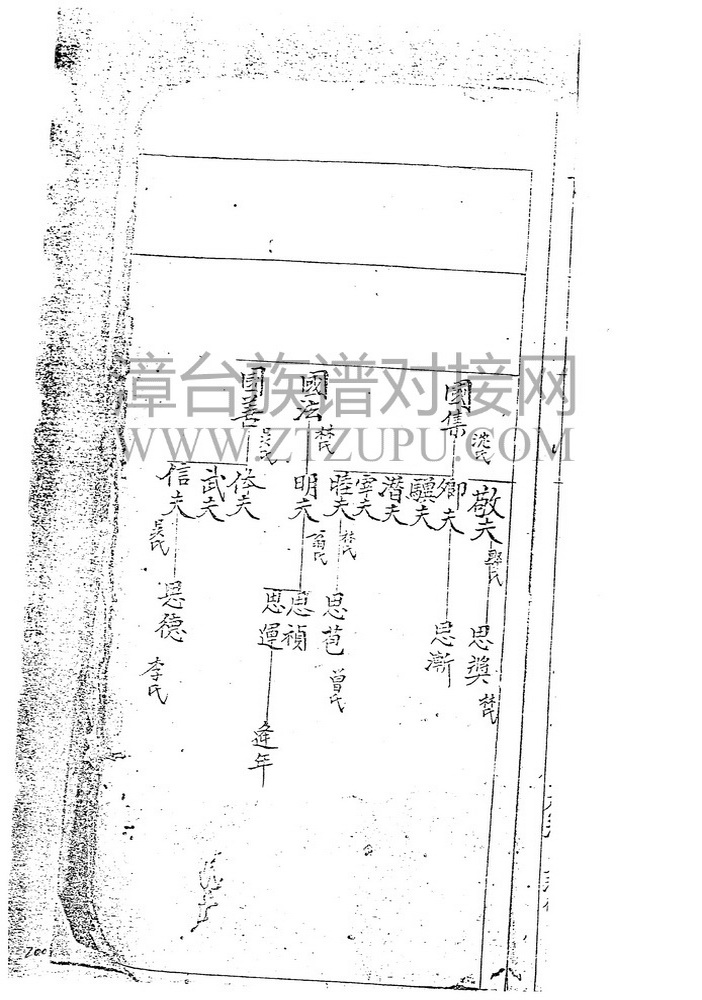 漳台族谱对接网
WWW.ZTZUPU.COM
國集
沈氏
國法
林氏
國善
吴氏
敬夫
郭氏
卿夫
驥夫
潛夫
寧夫
睦夫
林氏
明夫
翁氏
佐夫
武夫
信夫
吴氏
思奨
林氏
思漸
思苞
曾氏
思禎
思運
思德
李氏
逢年
200